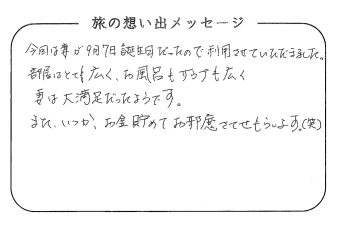 旅の想い出メッセージ
今回は妻が9月7日誕生日だったので利用させていただきました。
部屋はとても広く、お風呂もすごくも広く
妻は大満足だったようです。
また、いつか、お金貯めてお邪魔させてもらいます。(笑)